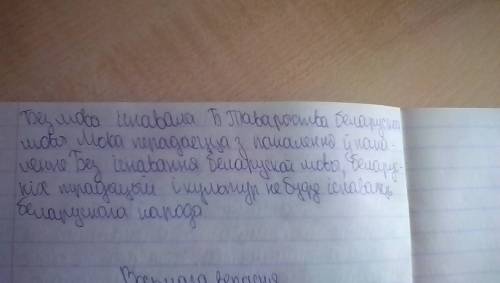 Без мова існавала Б Таварыства беларускай
мовы Мова перадаецца з пакалення ў пака-
ленне Без існавання беларускай мовы, белару-
кіх традыцый і культур не буде існаваць
беларускага народа